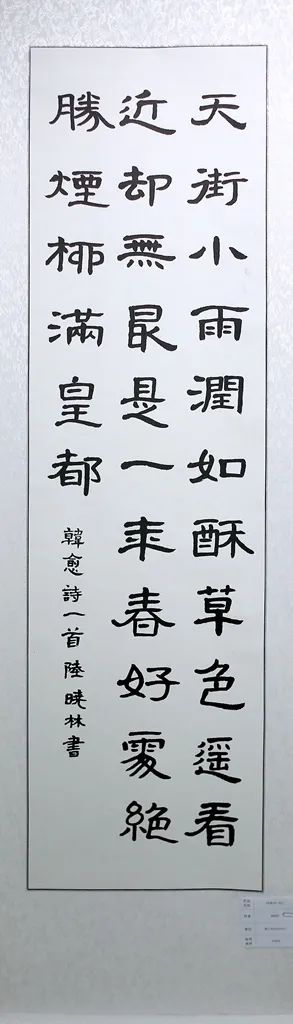 天街小雨潤如酥草色遥看
近却無最是一年春好處絶
勝煙柳滿皇都
韓愈詩一首陸曉林書